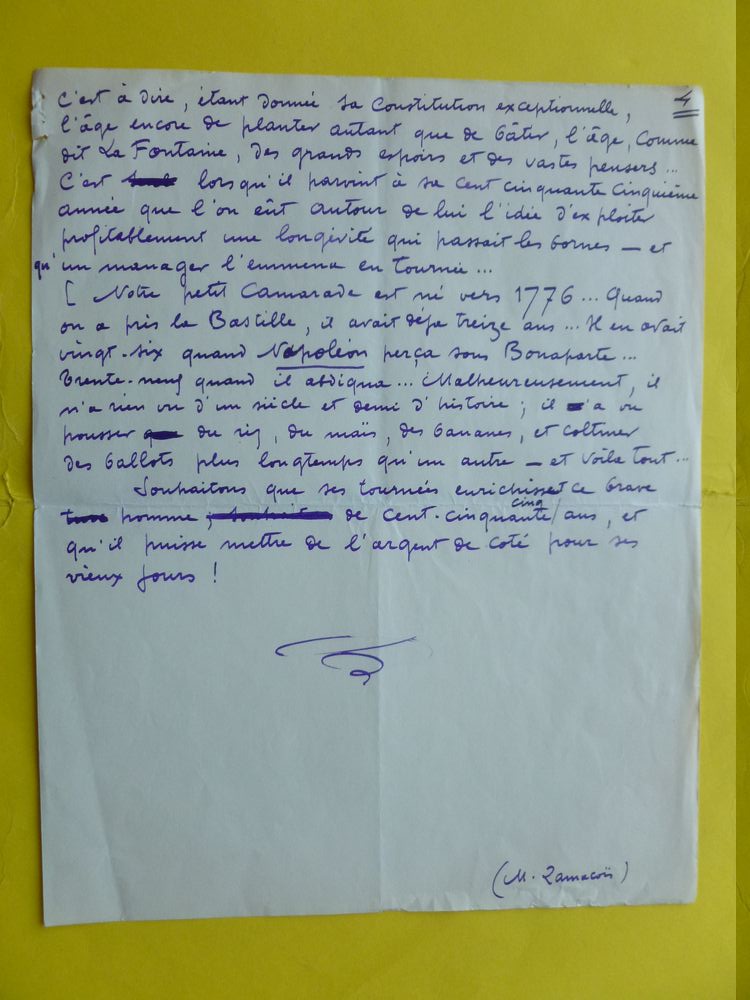 4
C'est à dire, étant donnée sa constitution exceptionnelle,
l'âge encore de planter autant que de bâtir, l'âge, comme
dit La Fontaine, des grands espoirs et des vastes pensers...
C'est lorsqu'il parvint à sa cent cinquante cinquième
année que l'on eût autour de lui l'idée d'exploiter
profitablement une longévité qui passait les bornes — et
qu'un manager l'emmena en tournée...
[ Notre petit camarade est né vers 1776... Quand
on a pris la Bastille, il avait déjà treize ans... Il en avait
vingt-six quand Napoléon perça sous Bonaparte...
trente-neuf quand il abdiqua... Malheureusement, il
n'a rien vu d'un siècle et demi d'histoire ; il a vu
pousser du riz, du maïs, des bananes, et coltiner
des ballots plus longtemps qu'un autre — et voilà tout...
Souhaitons que ses tournées enrichissent ce brave
homme de cent-cinquante cinq ans, et
qu'il puisse mettre de l'argent de coté pour ses
vieux jours !
(M. Zamacoïs)